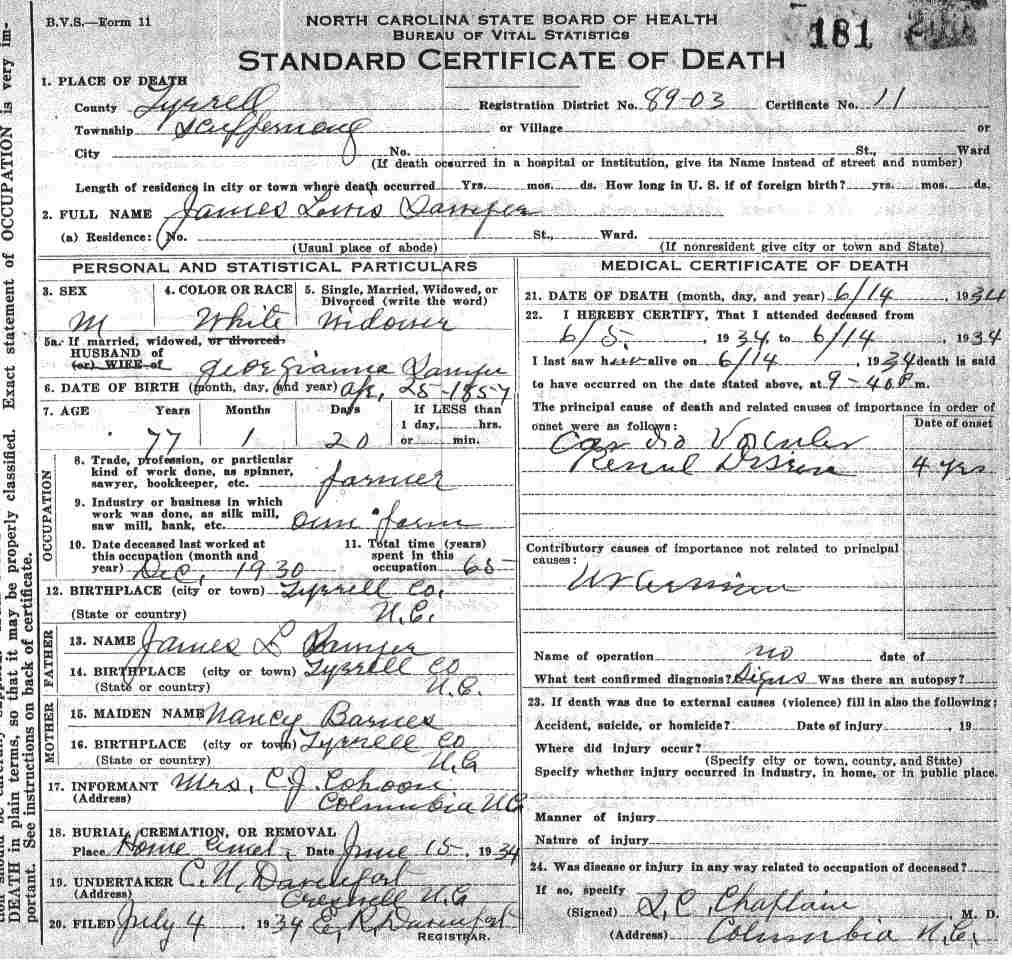 B.V.S.—Form 11
NORTH CAROLINA STATE BOARD OF HEALTH
BUREAU OF VITAL STATISTICS
181
STANDARD CERTIFICATE OF DEATH
1. PLACE OF DEATH
County Tyrrell Registration District No. 89-03 Certificate No. 11
Township Scuppernong or Village or
City No. St., Ward
(If death occurred in a hospital or institution, give its Name instead of street and number)
Length of residence in city or town where death occurred Yrs. mos. ds. How long in U. S. if of foreign birth? yrs. mos. ds.
2. FULL NAME James Lewis
(a) Residence: No. St., Ward.
(Usual place of abode) (If nonresident give city or town and State)
PERSONAL AND STATISTICAL PARTICULARS
3. SEX 4. COLOR OR RACE 5. Single, Married, Widowed, or
Divorced (write the word)
M White Widower
5a. If married, widowed, or divorced
HUSBAND of
(or) WIFE of Georgianna
6. DATE OF BIRTH (month, day, and year) Apr. 25-1857
7. AGE Years Months Days If LESS than
1 day, hrs.
77 1 20 or min.
OCCUPATION
8. Trade, profession, or particular
kind of work done, as spinner,
sawyer, bookkeeper, etc. farmer
9. Industry or business in which
work was done, as silk mill,
saw mill, bank, etc. own farm
10. Date deceased last worked at 11. Total time (years)
this occupation (month and spent in this
year) Dec, 1930 occupation 65
12. BIRTHPLACE (city or town) Tyrrell Co.
(State or country) N.C.
FATHER
13. NAME James L
14. BIRTHPLACE (city or town) Tyrrell Co
(State or country) N.C.
MOTHER
15. MAIDEN NAME Nancy Barnes
16. BIRTHPLACE (city or town) Tyrrell Co
(State or country) N.C
17. INFORMANT Mrs. C.J. Cohoon
(Address) Columbia N.C
18. BURIAL, CREMATION, OR REMOVAL
Place Home Cemet. Date June 15, 1934
19. UNDERTAKER C. N. Davenport
(Address) Creswell N.C
20. FILED July 4, 1934 E. R. Davenport
REGISTRAR.
MEDICAL CERTIFICATE OF DEATH
21. DATE OF DEATH (month, day, and year) 6/14, 1934
22. I HEREBY CERTIFY, That I attended deceased from
6/5, 1934, to 6/14, 1934
I last saw him alive on 6/14, 1934 death is said
to have occurred on the date stated above, at 9-40 P m.
The principal cause of death and related causes of importance in order of
onset were as follows: Date of onset
Cardio Vascular
Renal Disease 4 yrs
Contributory causes of importance not related to principal
causes:
Name of operation no date of
What test confirmed diagnosis? Signs Was there an autopsy?
23. If death was due to external causes (violence) fill in also the following:
Accident, suicide, or homicide? Date of injury , 19
Where did injury occur?
(Specify city or town, county, and State)
Specify whether injury occurred in industry, in home, or in public place.
Manner of injury
Nature of injury
24. Was disease or injury in any way related to occupation of deceased?
If so, specify
(Signed) Chaplain, M. D.
(Address) Columbia N.C.
DEATH in plain terms, so that it may be properly classified. Exact statement of OCCUPATION is very im-
portant. See instructions on back of certificate.